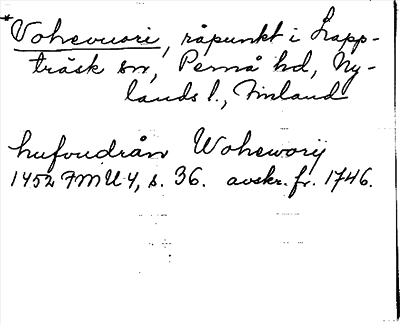 *Vohevuori, råpunkt i Lapp-
träsk sn, Pernå hd, Ny-
lands l., Finland
hufvudrån Wohewory
1452 FMU 4, s. 36. avskr. fr. 1746.